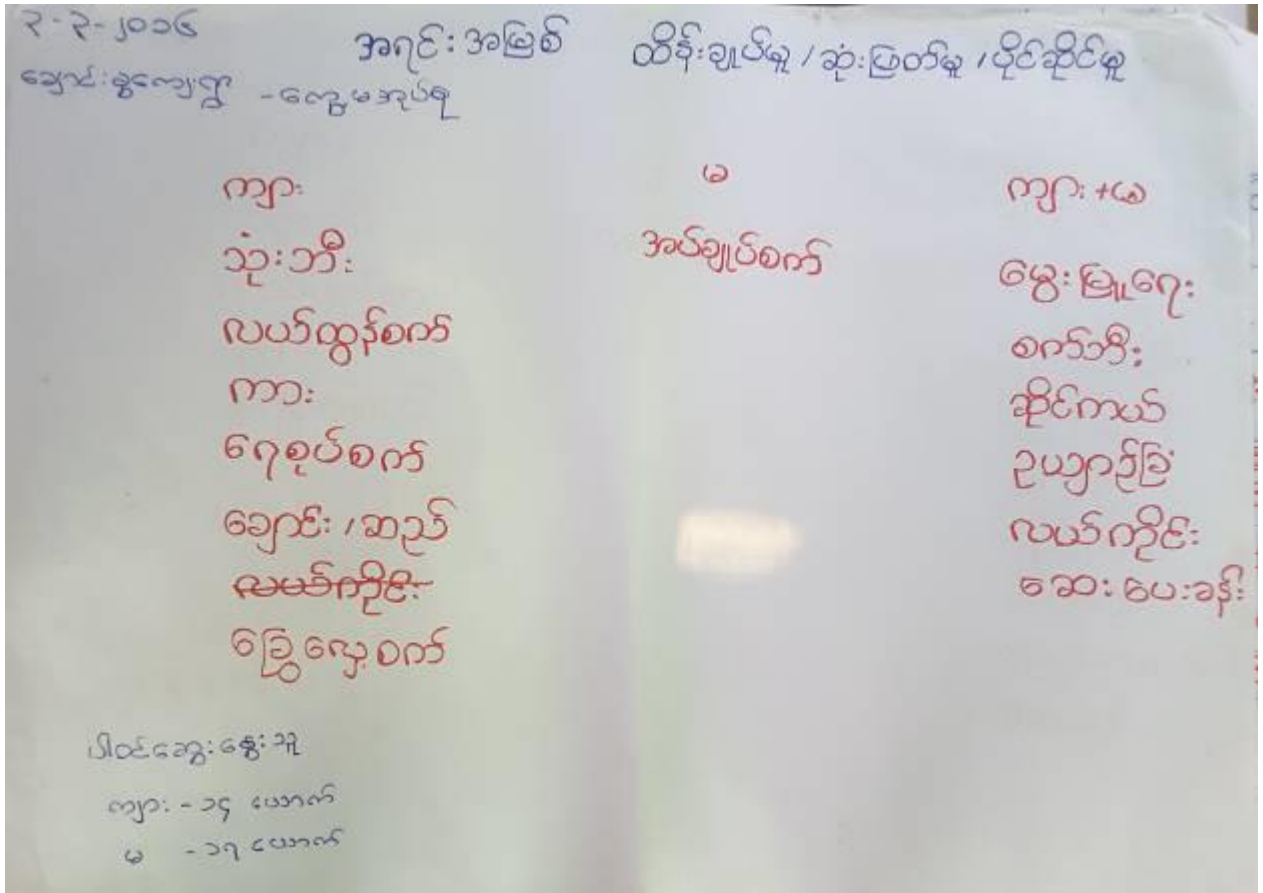 ၃-၃-၂၀၁၆
အရင်းအမြစ် ထိန်းချုပ်မှု / ဆုံးဖြတ်မှု / ပိုင်ဆိုင်မှု
ချောင်းခွကျေးရွာ - ကျွေ့မအုပ်စု
ကျား
သုံးဘီး
လယ်ထွန်စက်
ကား
ရေစုပ်စက်
ချောင်း / ဆည်
လယ်ကိုင်း
ခြွေလှေ့စက်
မ
အပ်ချုပ်စက်
ကျား + မ
မွေးမြူရေး
စက်ဘီး
ဆိုင်ကယ်
ဥယျာဉ်ခြံ
လယ်ကိုင်း
ဆေးပေးခန်း
ပါဝင်ဆွေးနွေးသူ
ကျား - ၁၄ ယောက်
မ - ၁၇ ယောက်